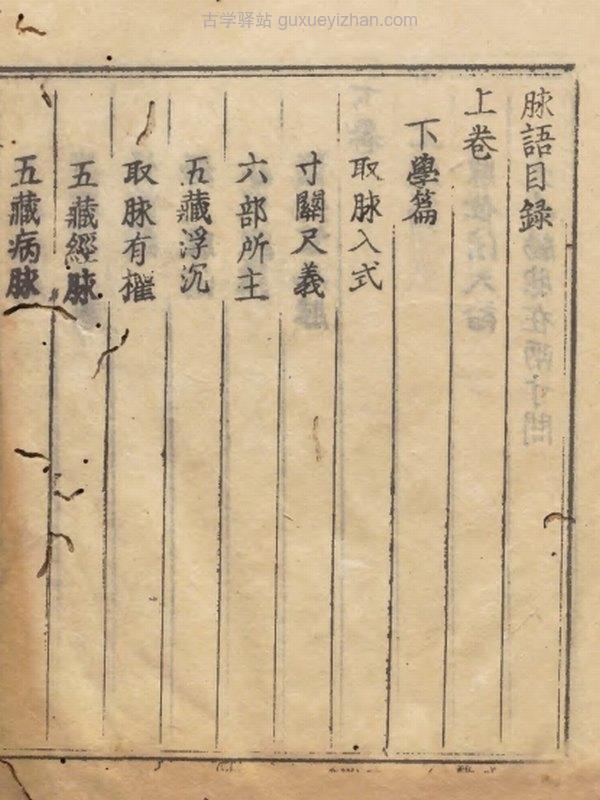 古学驿站 guxueyizhan.com
脉語目録
上卷
下學篇
取脉入式
寸關尺義
六部所主
五藏浮沉
取脉有權
五藏經脉
五藏病脉